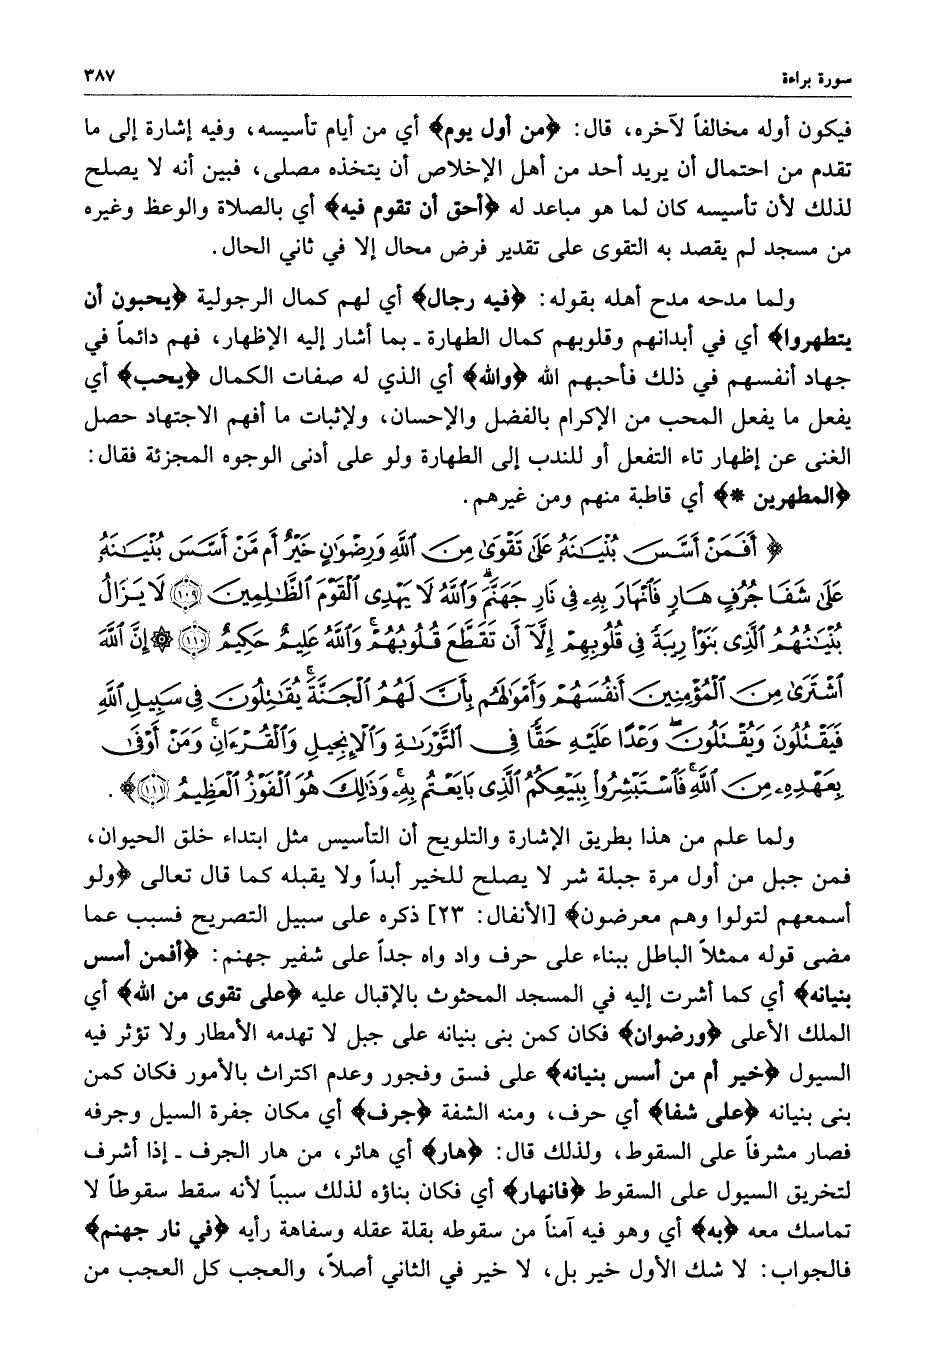 سورة براءة ٣٨٧
فيكون أوله مخالفاً لآخره، قال: ﴿من أول يوم﴾ أي من أيام تأسيسه، وفيه إشارة إلى ما
تقدم من احتمال أن يريد أحد من أهل الإخلاص أن يتخذه مصلى، فبين أنه لا يصلح
لذلك لأن تأسيسه كان لما هو مباعد له ﴿أحق أن تقوم فيه﴾ أي بالصلاة والوعظ وغيره
من مسجد لم يقصد به التقوى على تقدير فرض محال إلا في ثاني الحال.
ولما مدحه مدح أهله بقوله: ﴿فيه رجال﴾ أي لهم كمال الرجولية ﴿يحبون أن
يتطهروا﴾ أي في أبدانهم وقلوبهم كمال الطهارة ـ بما أشار إليه الإظهار، فهم دائماً في
جهاد أنفسهم في ذلك فأحبهم الله ﴿والله﴾ أي الذي له صفات الكمال ﴿يحب﴾ أي
يفعل ما يفعل المحب من الإكرام بالفضل والإحسان، ولإثبات ما أفهم الاجتهاد حصل
الغنى عن إظهار تاء التفعل أو للندب إلى الطهارة ولو على أدنى الوجوه المجزئة فقال:
﴿المطهرين *﴾ أي قاطبة منهم ومن غيرهم.
﴿أَفَمَنْ أَسَّسَ بُنْيَـٰنَهُۥ عَلَىٰ تَقْوَىٰ مِنَ ٱللَّهِ وَرِضْوَٰنٍ خَيْرٌ أَم مَّنْ أَسَّسَ بُنْيَـٰنَهُۥ
عَلَىٰ شَفَا جُرُفٍ هَارٍ فَٱنْهَارَ بِهِۦ فِى نَارِ جَهَنَّمَ ۗ وَٱللَّهُ لَا يَهْدِى ٱلْقَوْمَ ٱلظَّـٰلِمِينَ ١٠٩ لَا يَزَالُ
بُنْيَـٰنُهُمُ ٱلَّذِى بَنَوْا۟ رِيبَةً فِى قُلُوبِهِمْ إِلَّآ أَن تَقَطَّعَ قُلُوبُهُمْ ۗ وَٱللَّهُ عَلِيمٌ حَكِيمٌ ١١٠ ۞ إِنَّ ٱللَّهَ
ٱشْتَرَىٰ مِنَ ٱلْمُؤْمِنِينَ أَنفُسَهُمْ وَأَمْوَٰلَهُم بِأَنَّ لَهُمُ ٱلْجَنَّةَ ۚ يُقَـٰتِلُونَ فِى سَبِيلِ ٱللَّهِ
فَيَقْتُلُونَ وَيُقْتَلُونَ ۖ وَعْدًا عَلَيْهِ حَقًّا فِى ٱلتَّوْرَىٰةِ وَٱلْإِنجِيلِ وَٱلْقُرْءَانِ ۚ وَمَنْ أَوْفَىٰ
بِعَهْدِهِۦ مِنَ ٱللَّهِ ۚ فَٱسْتَبْشِرُوا۟ بِبَيْعِكُمُ ٱلَّذِى بَايَعْتُم بِهِۦ ۚ وَذَٰلِكَ هُوَ ٱلْفَوْزُ ٱلْعَظِيمُ ١١١﴾.
ولما علم من هذا بطريق الإشارة والتلويح أن التأسيس مثل ابتداء خلق الحيوان،
فمن جبل من أول مرة جبلة شر لا يصلح للخير أبداً ولا يقبله كما قال تعالى ﴿ولو
أسمعهم لتولوا وهم معرضون﴾ [الأنفال: ٢٣] ذكره على سبيل التصريح فسبب عما
مضى قوله ممثلاً الباطل ببناء على حرف واد واه جداً على شفير جهنم: ﴿أفمن أسس
بنيانه﴾ أي كما أشرت إليه في المسجد المحثوث بالإقبال عليه ﴿على تقوى من الله﴾ أي
الملك الأعلى ﴿ورضوان﴾ فكان كمن بنى بنيانه على جبل لا تهدمه الأمطار ولا تؤثر فيه
السيول ﴿خير أم من أسس بنيانه﴾ على فسق وفجور وعدم اكتراث بالأمور فكان كمن
بنى بنيانه ﴿على شفا﴾ أي حرف، ومنه الشفة ﴿جرف﴾ أي مكان جفرة السيل وجرفه
فصار مشرفاً على السقوط، ولذلك قال: ﴿هار﴾ أي هائر، من هار الجرف ـ إذا أشرف
لتخريق السيول على السقوط ﴿فانهار﴾ أي فكان بناؤه لذلك سبباً لأنه سقط سقوطاً لا
تماسك معه ﴿به﴾ أي وهو فيه آمناً من سقوطه بقلة عقله وسفاهة رأيه ﴿في نار جهنم﴾
فالجواب: لا شك الأول خير بل، لا خير في الثاني أصلاً، والعجب كل العجب من